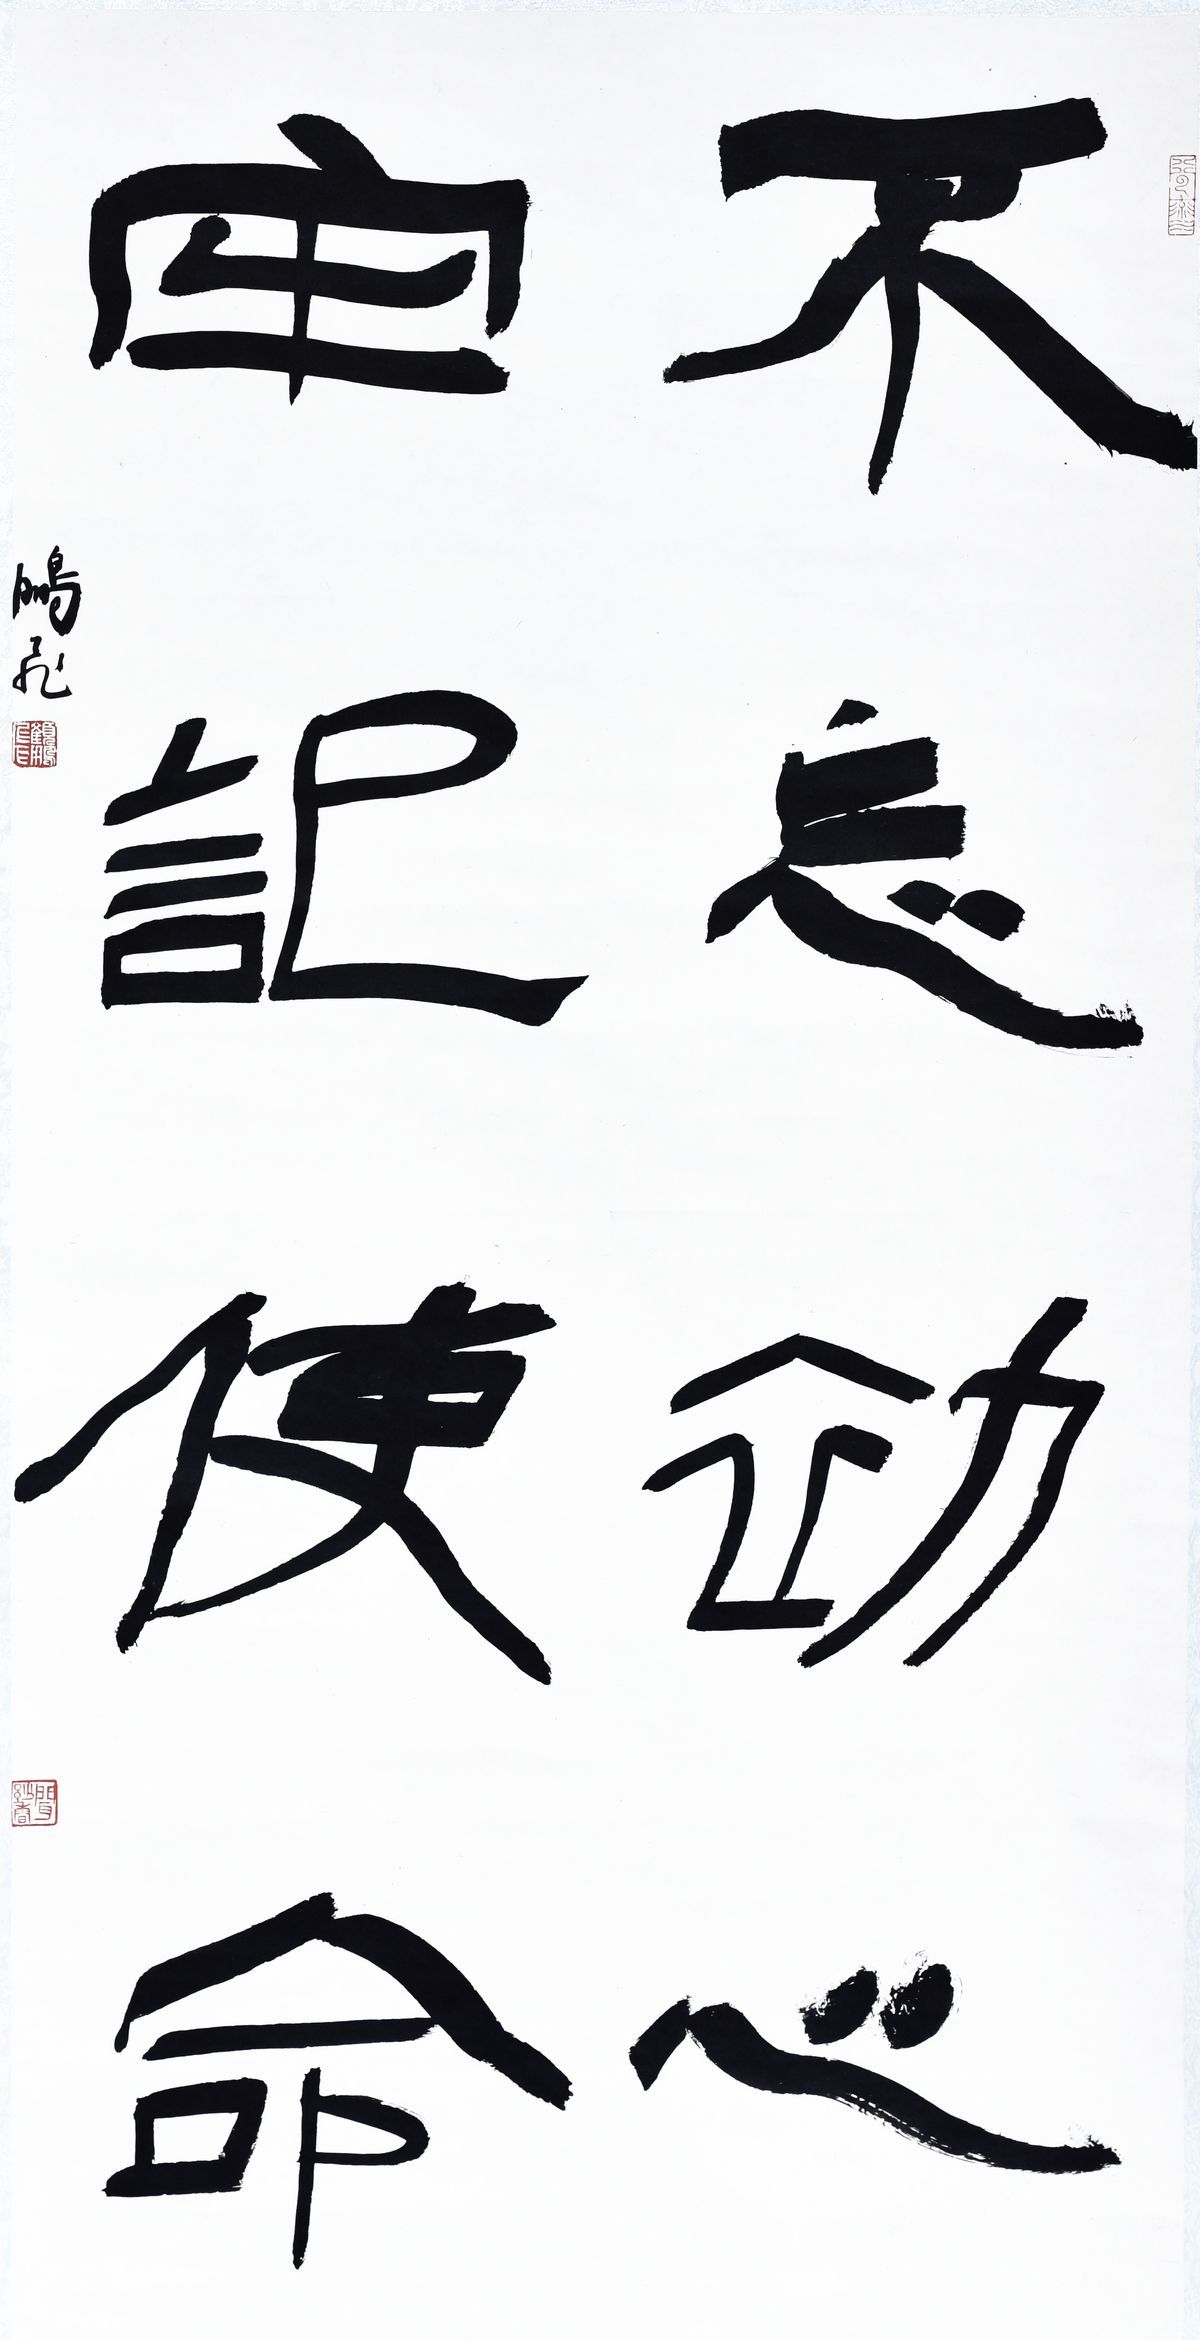 不忘初心
牢記使命
鵬飛